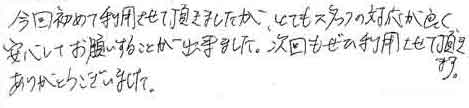 今回初めて利用させて頂きましたが、とてもスタッフの対応が良く
安心してお願いすることが出来ました。次回もぜひ利用させて頂き
ます。
ありがとうございました。